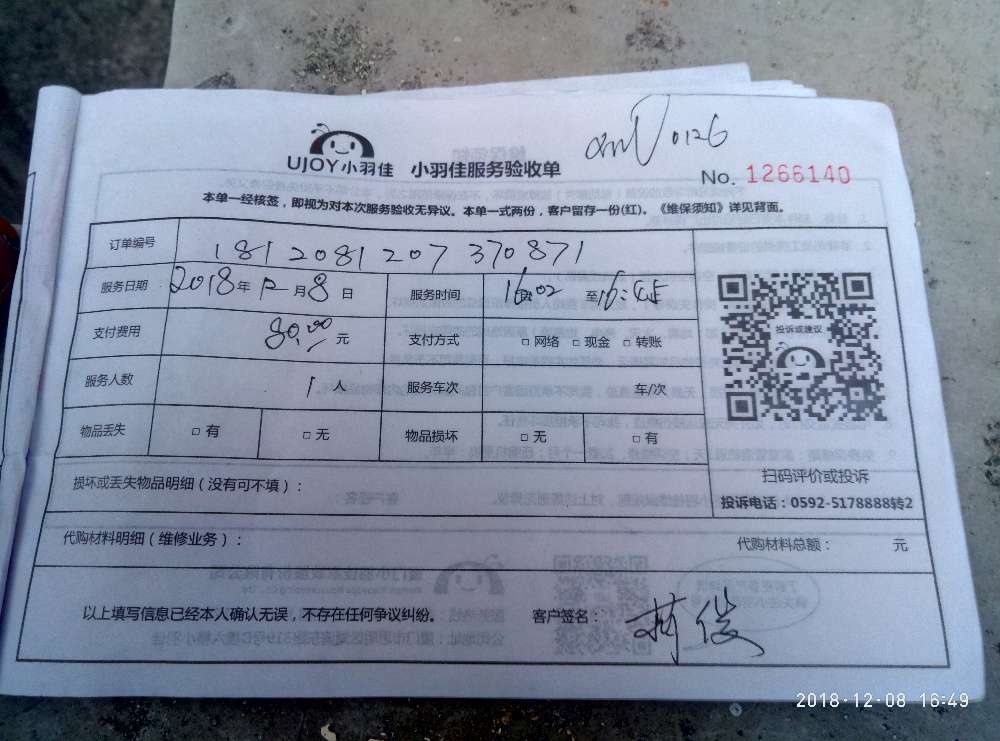 UJOY小羽佳 小羽佳服务验收单
0126
No. 1266140
本单一经核签，即视为对本次服务验收无异议。本单一式两份，客户留存一份(红)。《维保须知》详见背面。
订单编号 1812081207370871
服务日期 2018年12月8日 服务时间 16:02 至16:45
支付费用 80.00元 支付方式 □ 网络 □ 现金 □ 转账
服务人数 1人 服务车次 车/次
物品丢失 □ 有 □ 无 物品损坏 □ 无 □ 有
投诉或建议
扫码评价或投诉
投诉电话：0592-5178888转2
损坏或丢失物品明细（没有可不填）：
代购材料明细（维修业务）： 代购材料总额： 元
以上填写信息已经本人确认无误，不存在任何争议纠纷。 客户签名：
2018-12-08 16:49